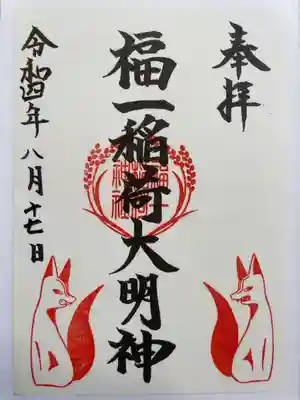 奉拝
福一稲荷大明神
令和四年八月十七日